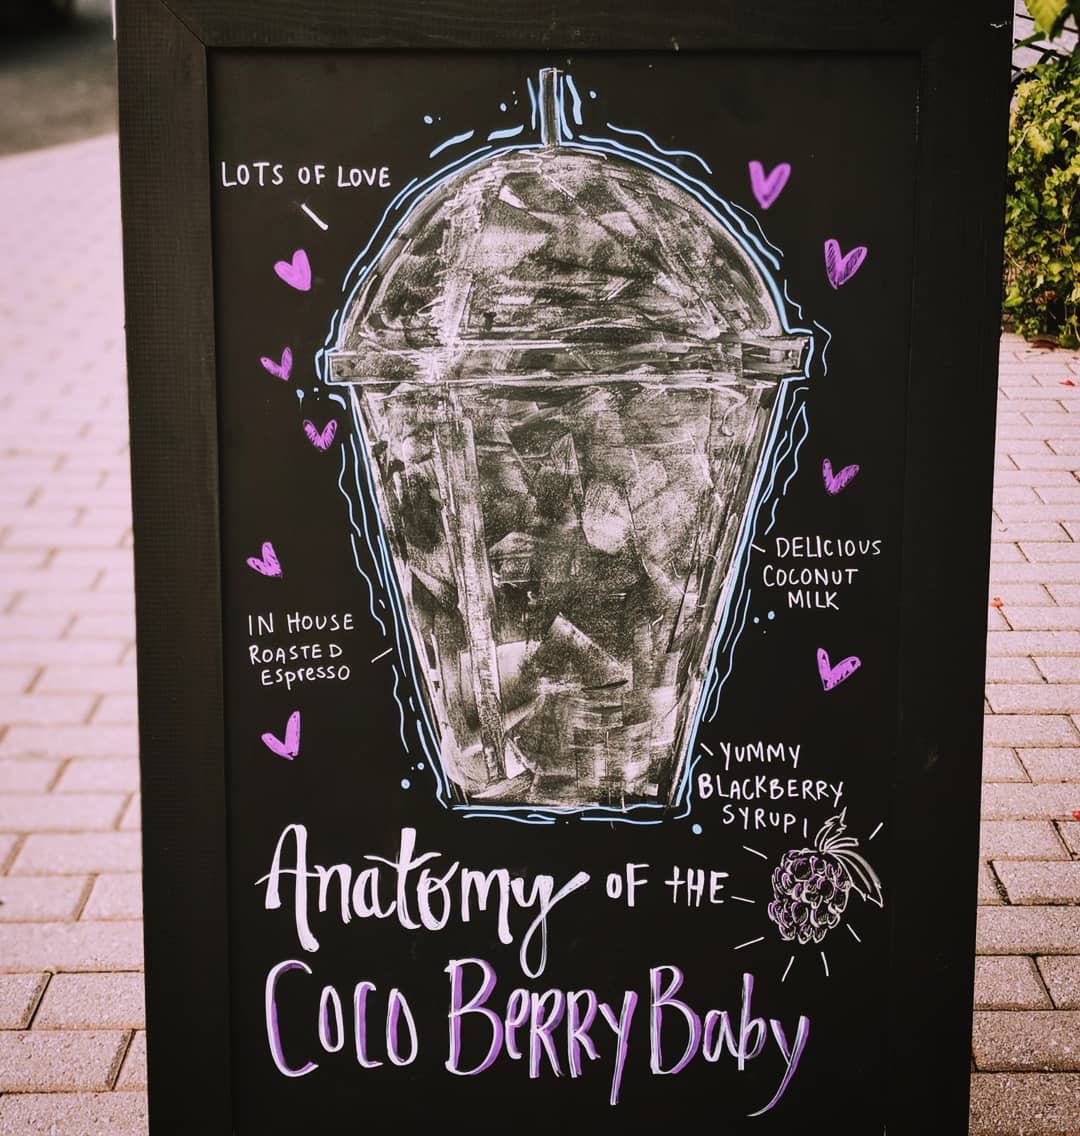 LOTS OF LOVE
DELICIOUS
COCONUT
MILK
IN HOUSE
ROASTED
Espresso
YUMMY
BLACKBERRY
SYRUP
Anatomy OF tHE
COCO BERRY Baby